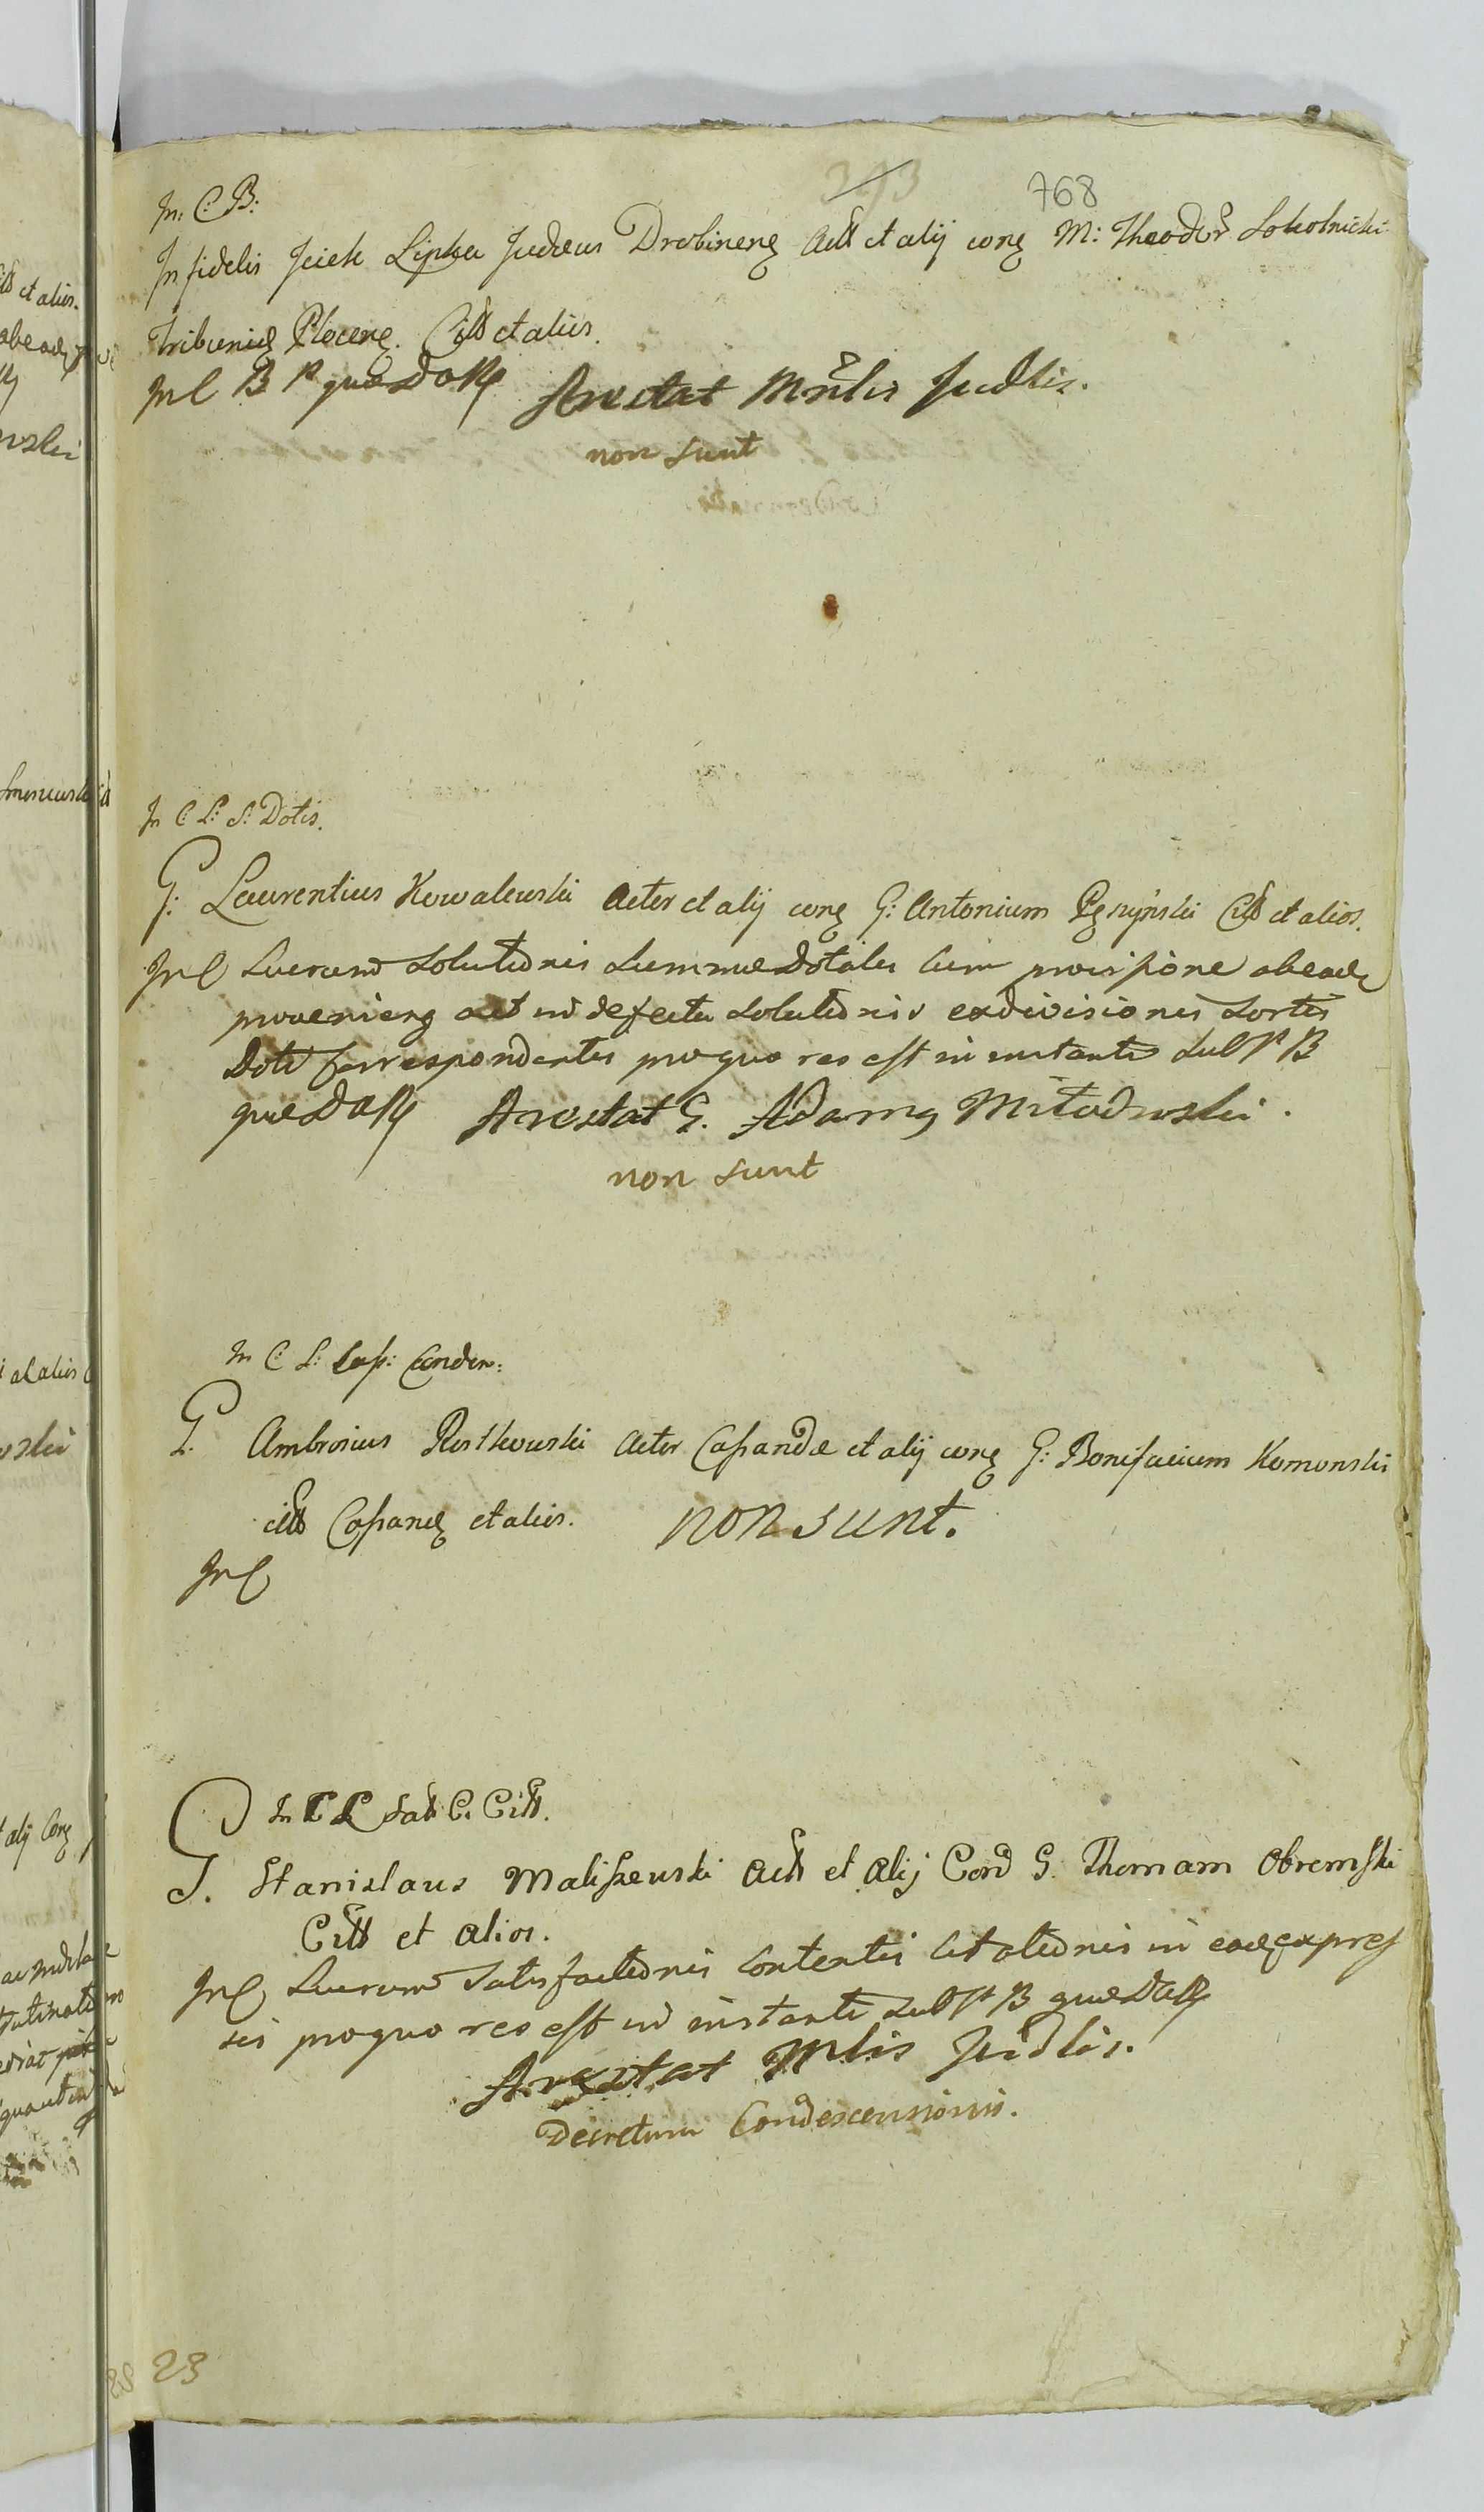 293
768
In: C: B:
Infidelis Jciek Lipka Judæus Drobinens Actt et alij cong M: Theodor Sokolnicki
Tribunid Plocens. Citt et alios.
Inl B P quæ Dass Arestat Mnlis Judlis.
non sunt
In C: L: S: Dotis.
G: Laurentius Kowalewski Actor et alij cong G: Antonium Citt et alios.
Inl Lucrum Solutionis Summæ dotalis cum provisione abead
provenieng aut in defectu solutionis exdivisionis Sortis
Doti Correspondentis pro quo res est in instanti Sub P B
quæ Dass Arestat G. Adamg Mitodroski.
non sunt
In C: L: Cass: Conden:
G. Ambrosius Rostkowski Actor Cassandæ et alij cong G: Bonifacium Komonski
citt Cassand et alios. non sunt.
Inl
In C L Satt C. Citt.
G. Stanislaus Maliszewski Actt et Alij Con G. Thomam Obremski
Citt et alios.
Inl Lucrum Satisfactionis Contentis Citationis in ead expres
sis pro quo res est in instanti Sub P B quæ Dass
Arestat Mlis Judlis.
Decretum Condescensionis.
23